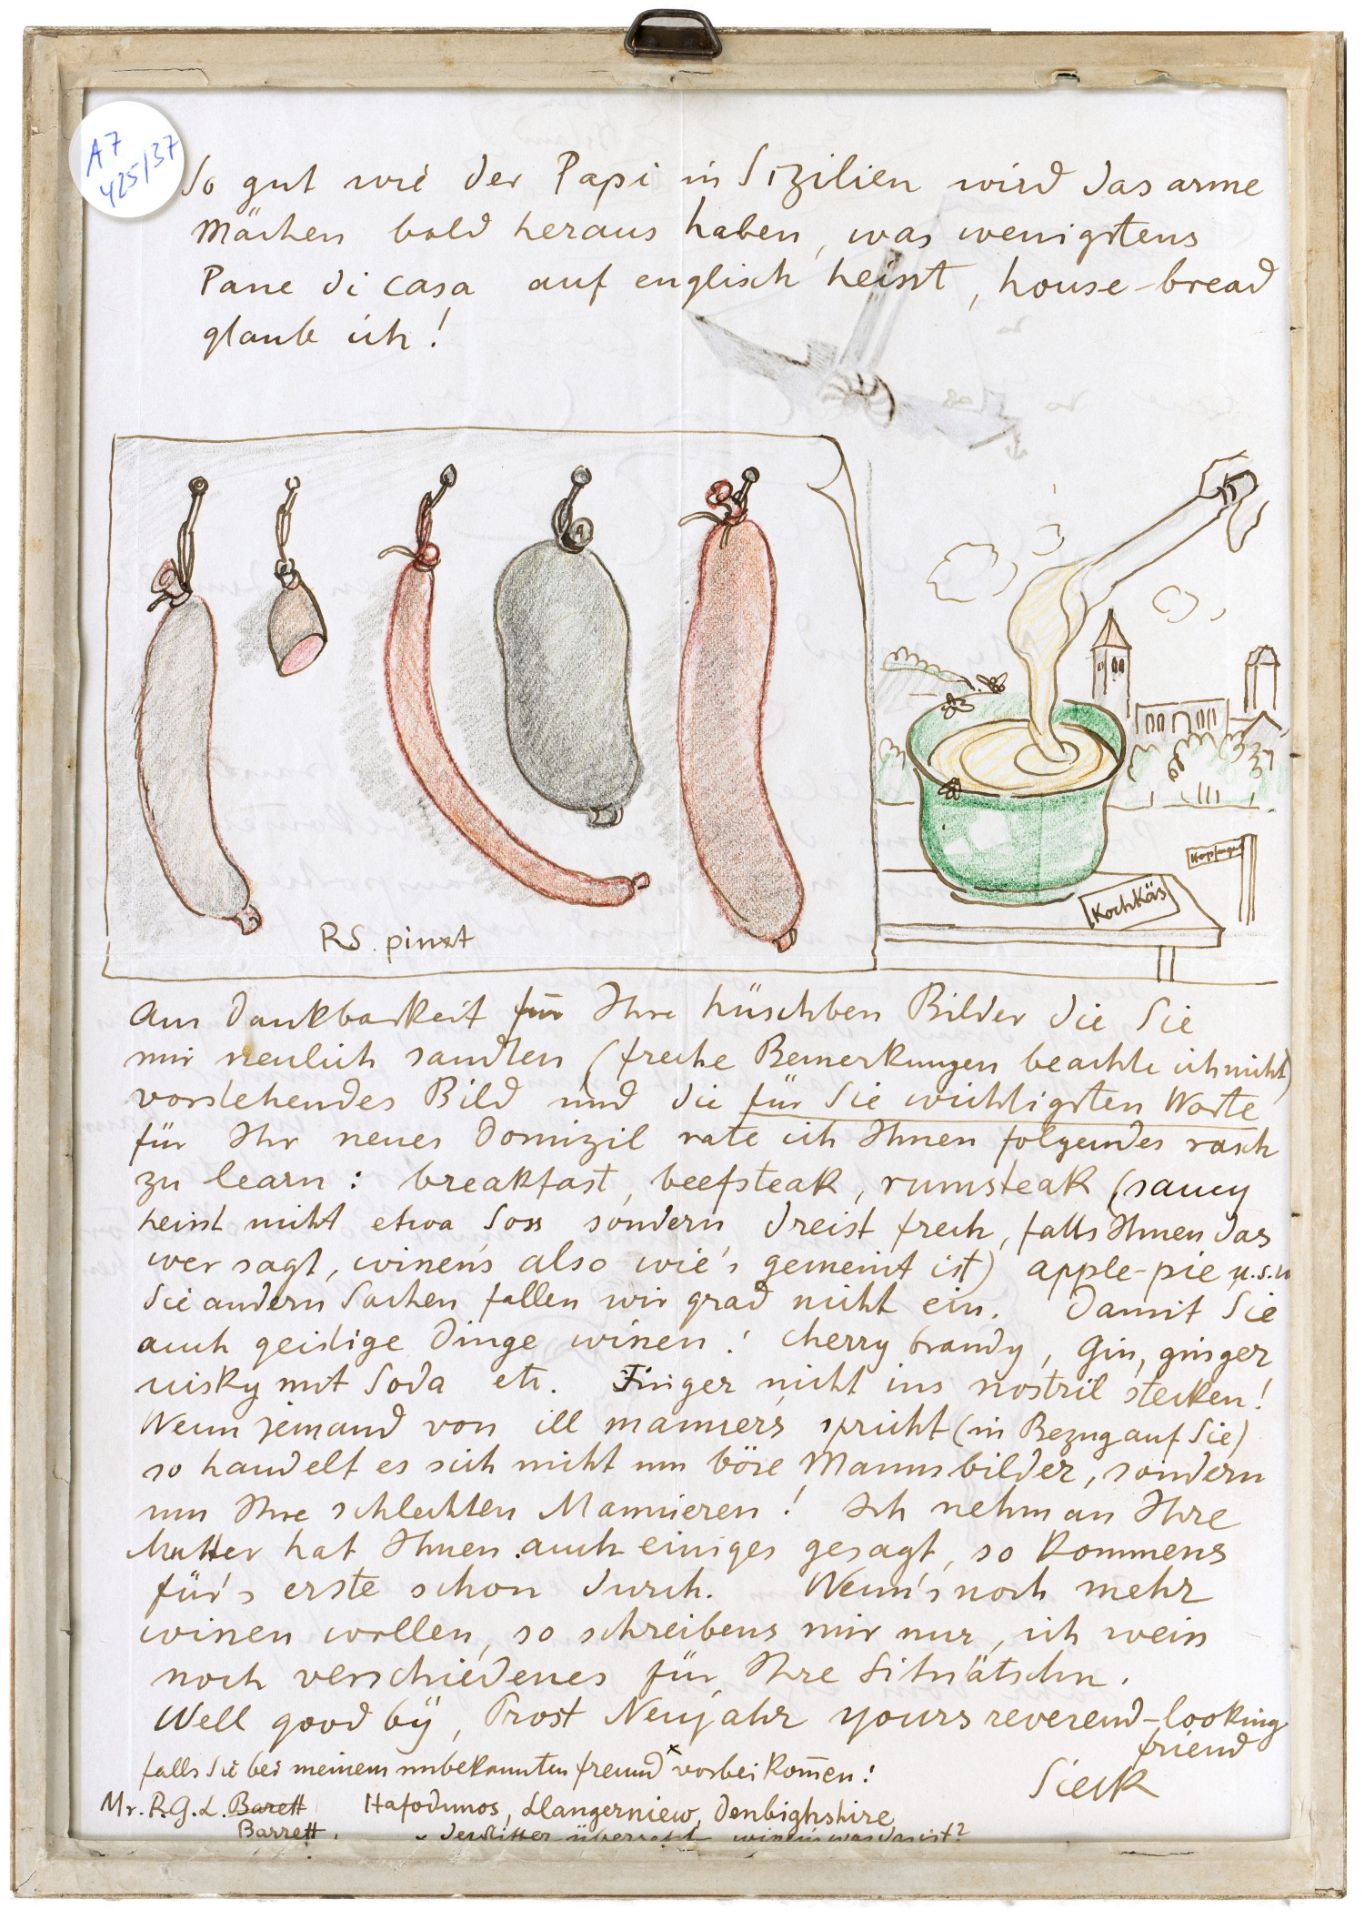 A7
425/37
So gut wie der Papi in Sizilien wird das arme
Mächen bald heraus haben, was wenigstens
Pane di casa auf englisch heisst, house-bread
glaub ich!
RS. pinxt
Kochkäs
Aus Dankbarkeit für Ihre hüschben Bilder die Sie
mir neulich sandten (freche Bemerkungen beachte ich nicht)
vorstehendes Bild und die für Sie wichtigsten Worte
für Ihr neues Domizil rate ich Ihnen folgendes rasch
zu learn: breakfast, beefsteak, rumsteak (saucy
heisst nicht etwa Soss sondern dreist frech, falls Ihnen das
wer sagt, wissen's also wie's gemeint ist) apple-pie u.s.w
die andern Sachen fallen mir grad nicht ein. Damit Sie
auch geistige Dinge wissen: cherry brandy, Gin, ginger
uisky mit Soda etc. Finger nicht ins nostril stecken!
Wenn jemand von ill manners spricht (in Bezug auf Sie)
so handelt es sich nicht um böse Mannsbilder, sondern
um Ihre schlechten Mannieren! Ich nehm an Ihre
Mutter hat Ihnen auch einiges gesagt, so kommens
für's erste schon durch. Wenn's noch mehr
wissen wollen, so schreibens mir nur, ich weiss
noch verschiedenes für Ihre Situätschn.
Well good bÿ, Prost Neujahr yours reverend-looking
friend
Sieck
falls Sie bei meinem unbekannten freund x vorbei kom̄en!
Mr. R.G.L. Barett Hafodunos, Llangerniew, Denbighshire
Barrett. x der Ritter übersetzt wissen's was das ist?